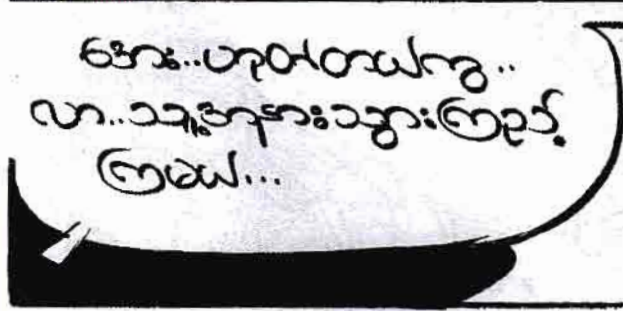 အေး..ဟုတ်တယ်ကွ..
လာ..သူ့အနားသွားကြည့်
ကြမယ်...